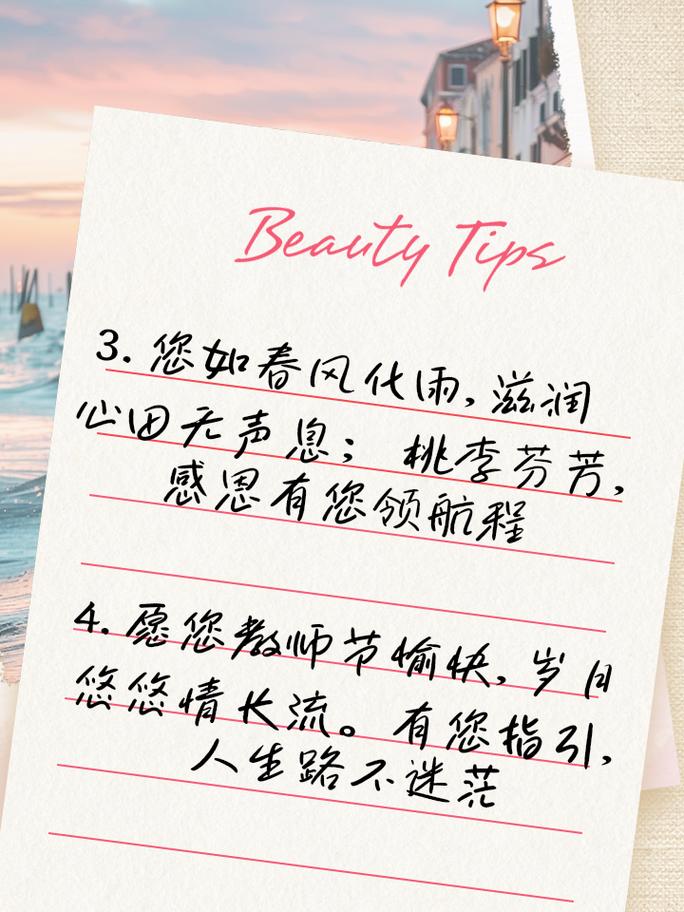 Beauty Tips
3. 您如春风化雨,滋润
心田无声息; 桃李芬芳,
感恩有您领航程
4. 愿您教师节愉快,岁月
悠悠情长流。有您指引,
人生路不迷茫